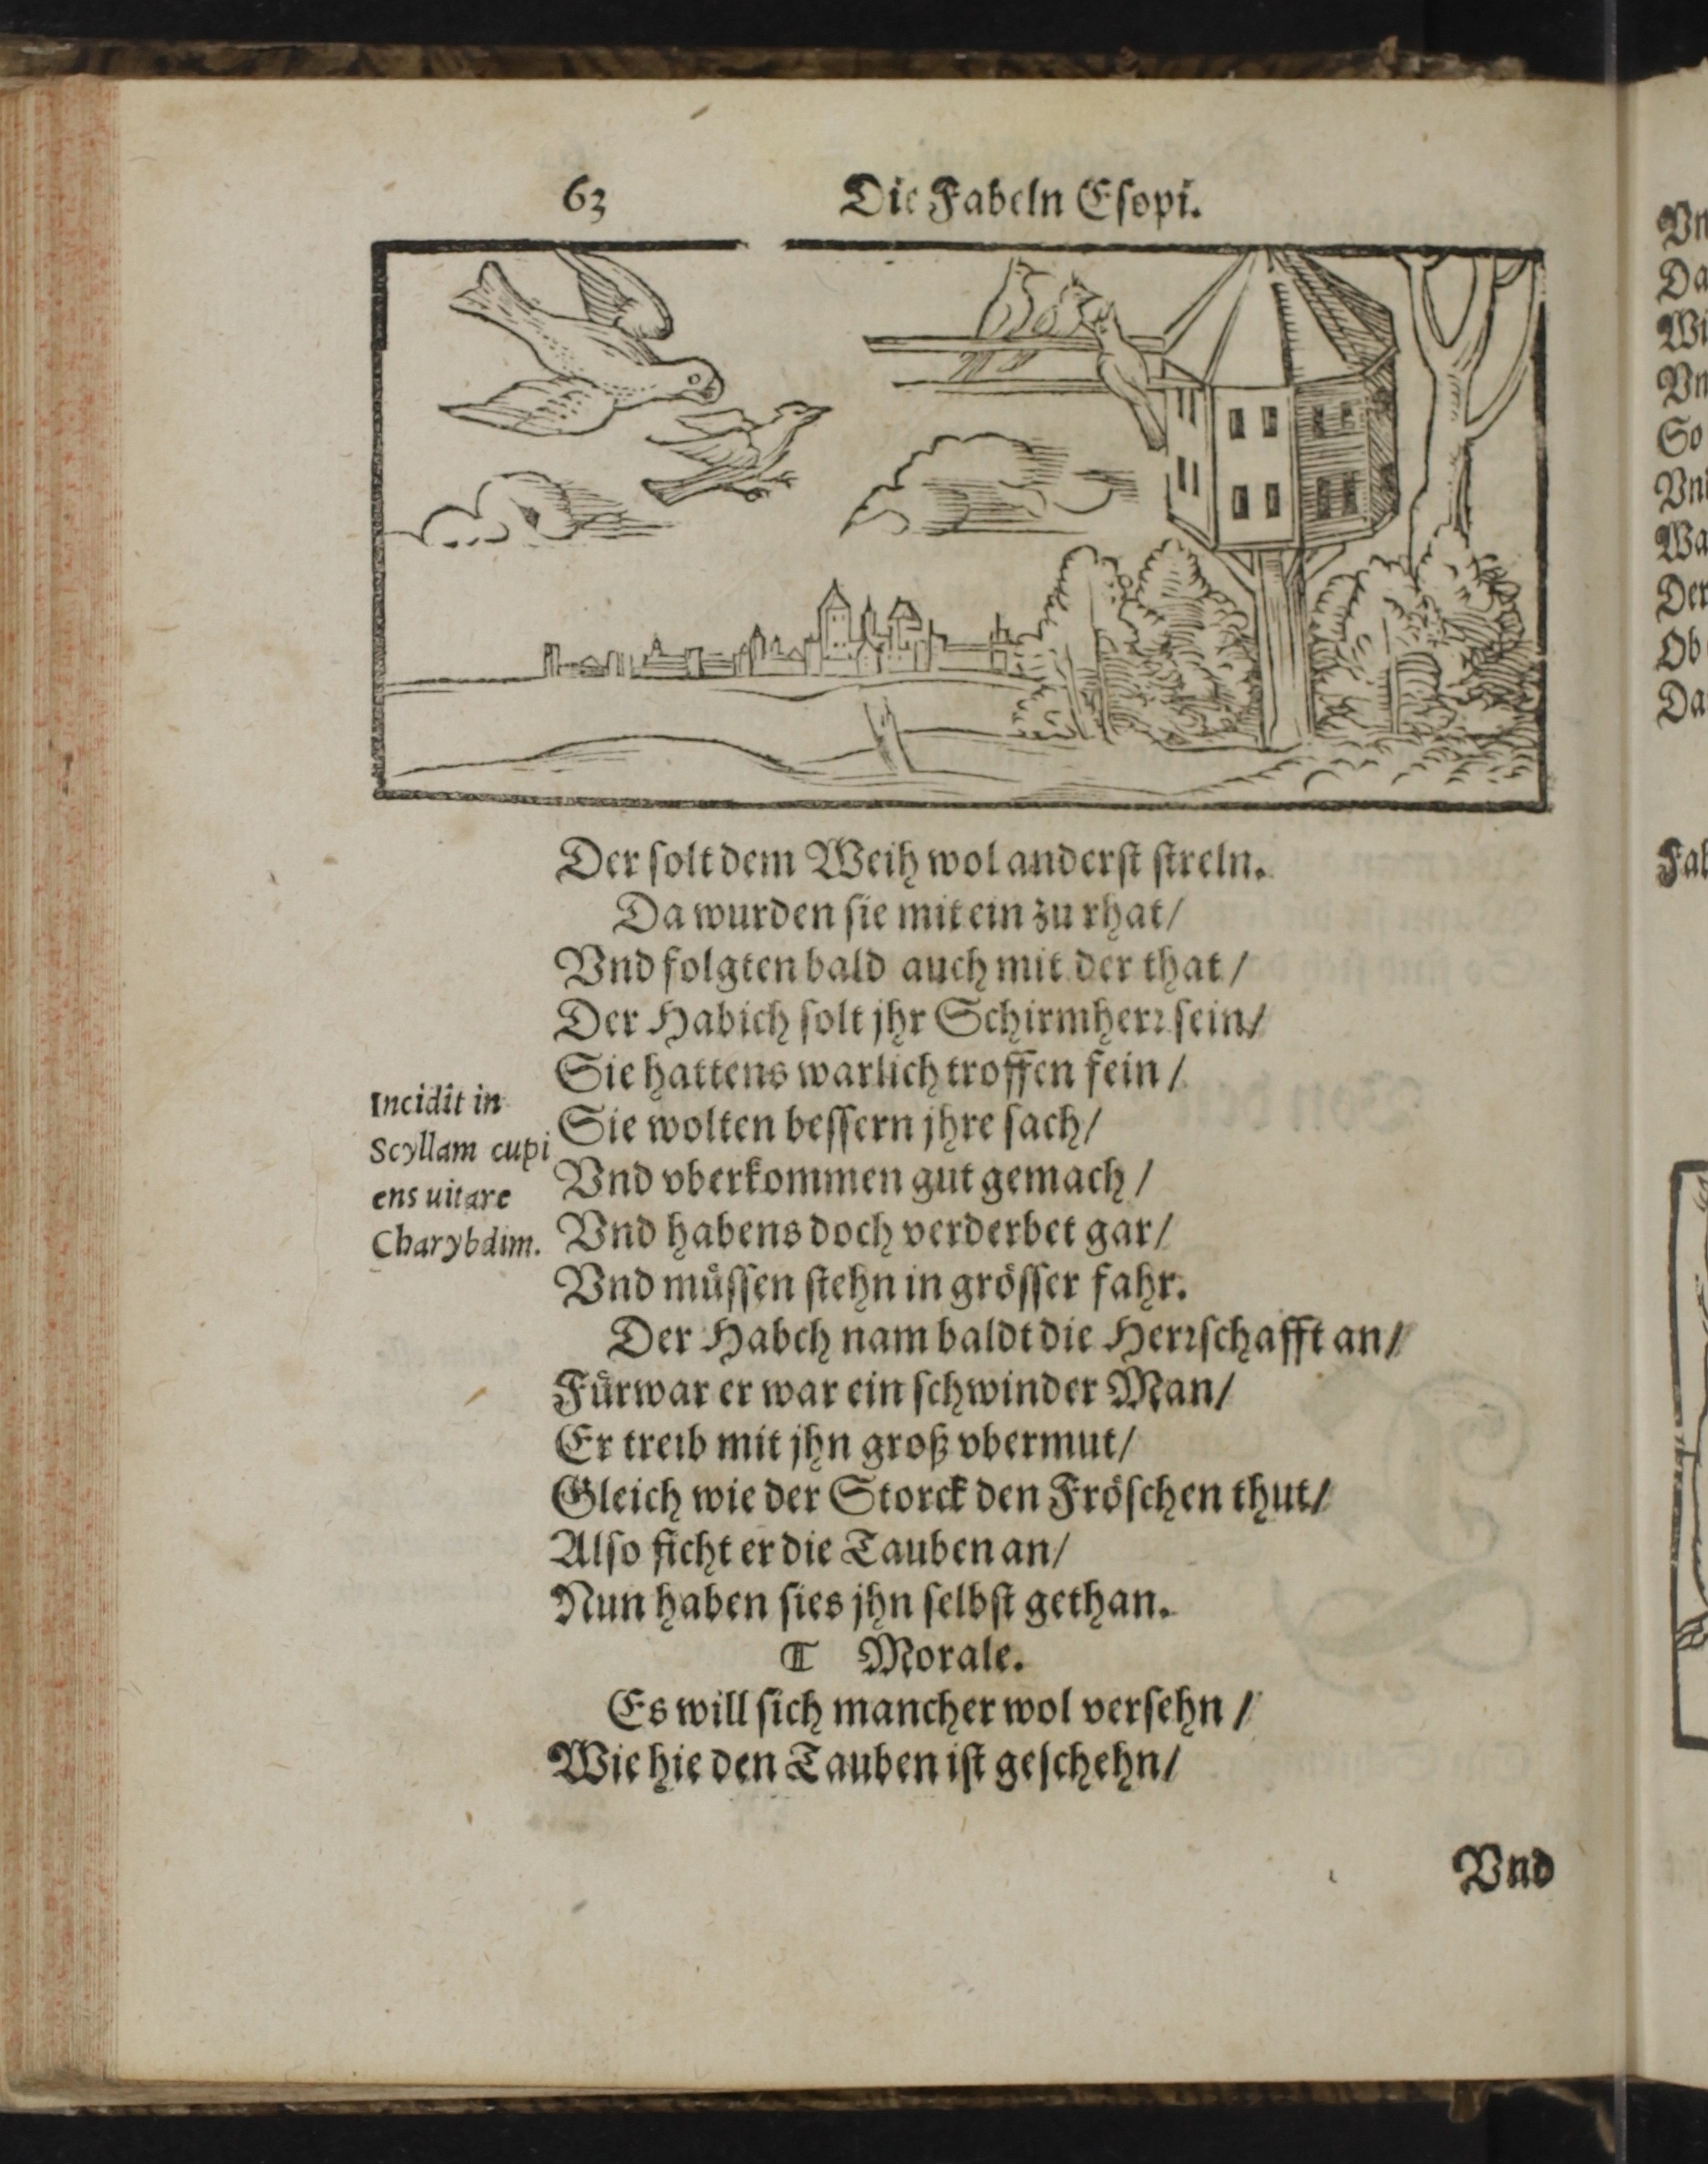 63 Die Fabeln Esopi.
Der solt dem Weih wol anderst streln.
Da wurden sie mit ein zu rhat/
Vnd folgten bald auch mit der that/
Der Habich solt jhr Schirmherr sein/
Sie hattens warlich troffen fein/
Sie wolten bessern jhre sach/
Vnd vberkommen gut gemach/
Vnd habens doch verderbet gar/
Vnd müssen stehn in grösser fahr.
Incidit in
Scyllam cupi
ens uitare
Charybdim.
Der Habch nam baldt die Herrschafft an/
Fürwar er war ein schwinder Man/
Er treib mit jhn groß vbermut/
Gleich wie der Storck den Fröschen thut/
Also ficht er die Tauben an/
Nun haben sies jhn selbst gethan.
¶ Morale.
Es will sich mancher wol versehn/
Wie hie den Tauben ist geschehn/
Vnd
Vn
Da
Wi
Vn
So
Vn
Wa
Der
Ob
Da
Fab